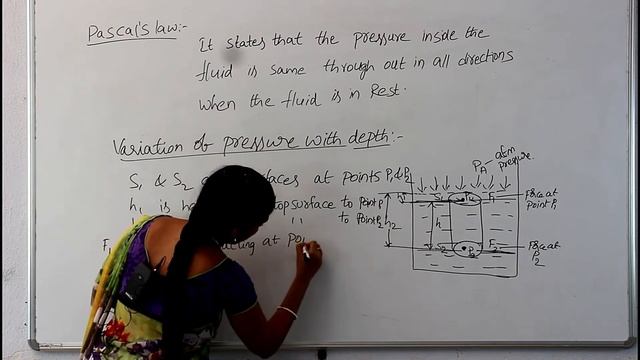 Pascal's law:-
It states that the pressure inside the
fluid is same through out in all directions
when the fluid is in Rest.
Variation of pressure with depth:-
S1 & S2 surfaces at points P1 & P2
h1 is top surface to point P
" to point P2
F1 acting at poi
PA atm
pressure.
h1 S1 P1 F1 Force at
point P1
h2 h
S2 P2 F2 Force at
P2